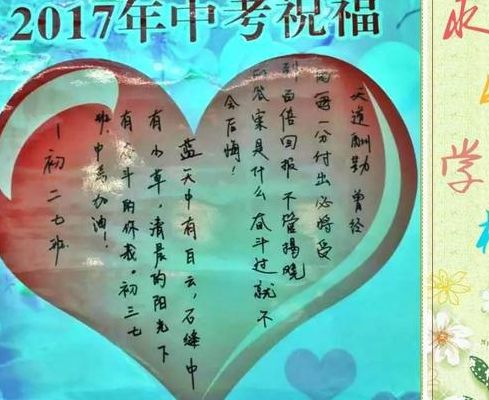 2017年中考祝福
天道酬勤 曾经
的每一分付出必将受
到百倍回报 不管揭晓
的答案是什么 奋斗过就不
会后悔！
蓝天中有白云，石缝中
有小草，清晨的阳光下
有奋斗的你我。初三七
班，中考加油！
—初二七班
学